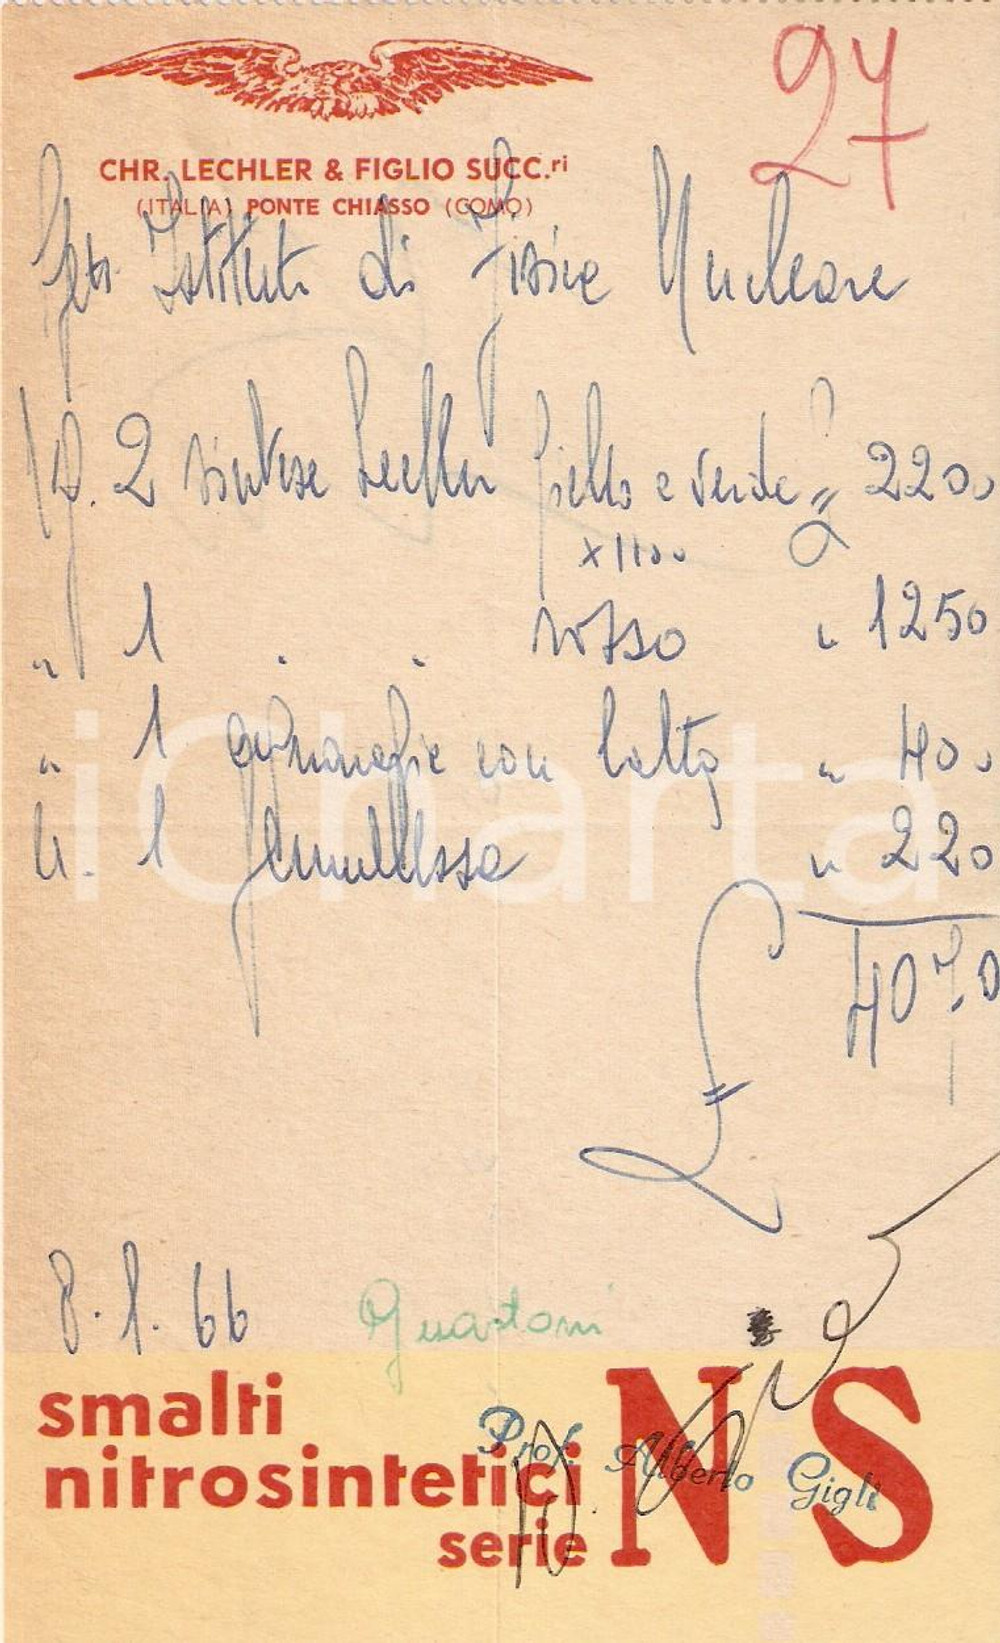 27
CHR. LECHLER & FIGLIO SUCC.ri
(ITALIA) PONTE CHIASSO (COMO)
Istituto di Fisica Nucleare
Kg. 2 sintesi Lechler giallo e verde £ 2200
x 1100
" 1 . . rosso " 1250
" 1 acquaragia con latta " 400
" 1 pennellessa " 220
£ 4070
8.1.66 Guastoni
smalti
nitrosintetici
serie
NS
Prof. Alberto Gigli
iCharta